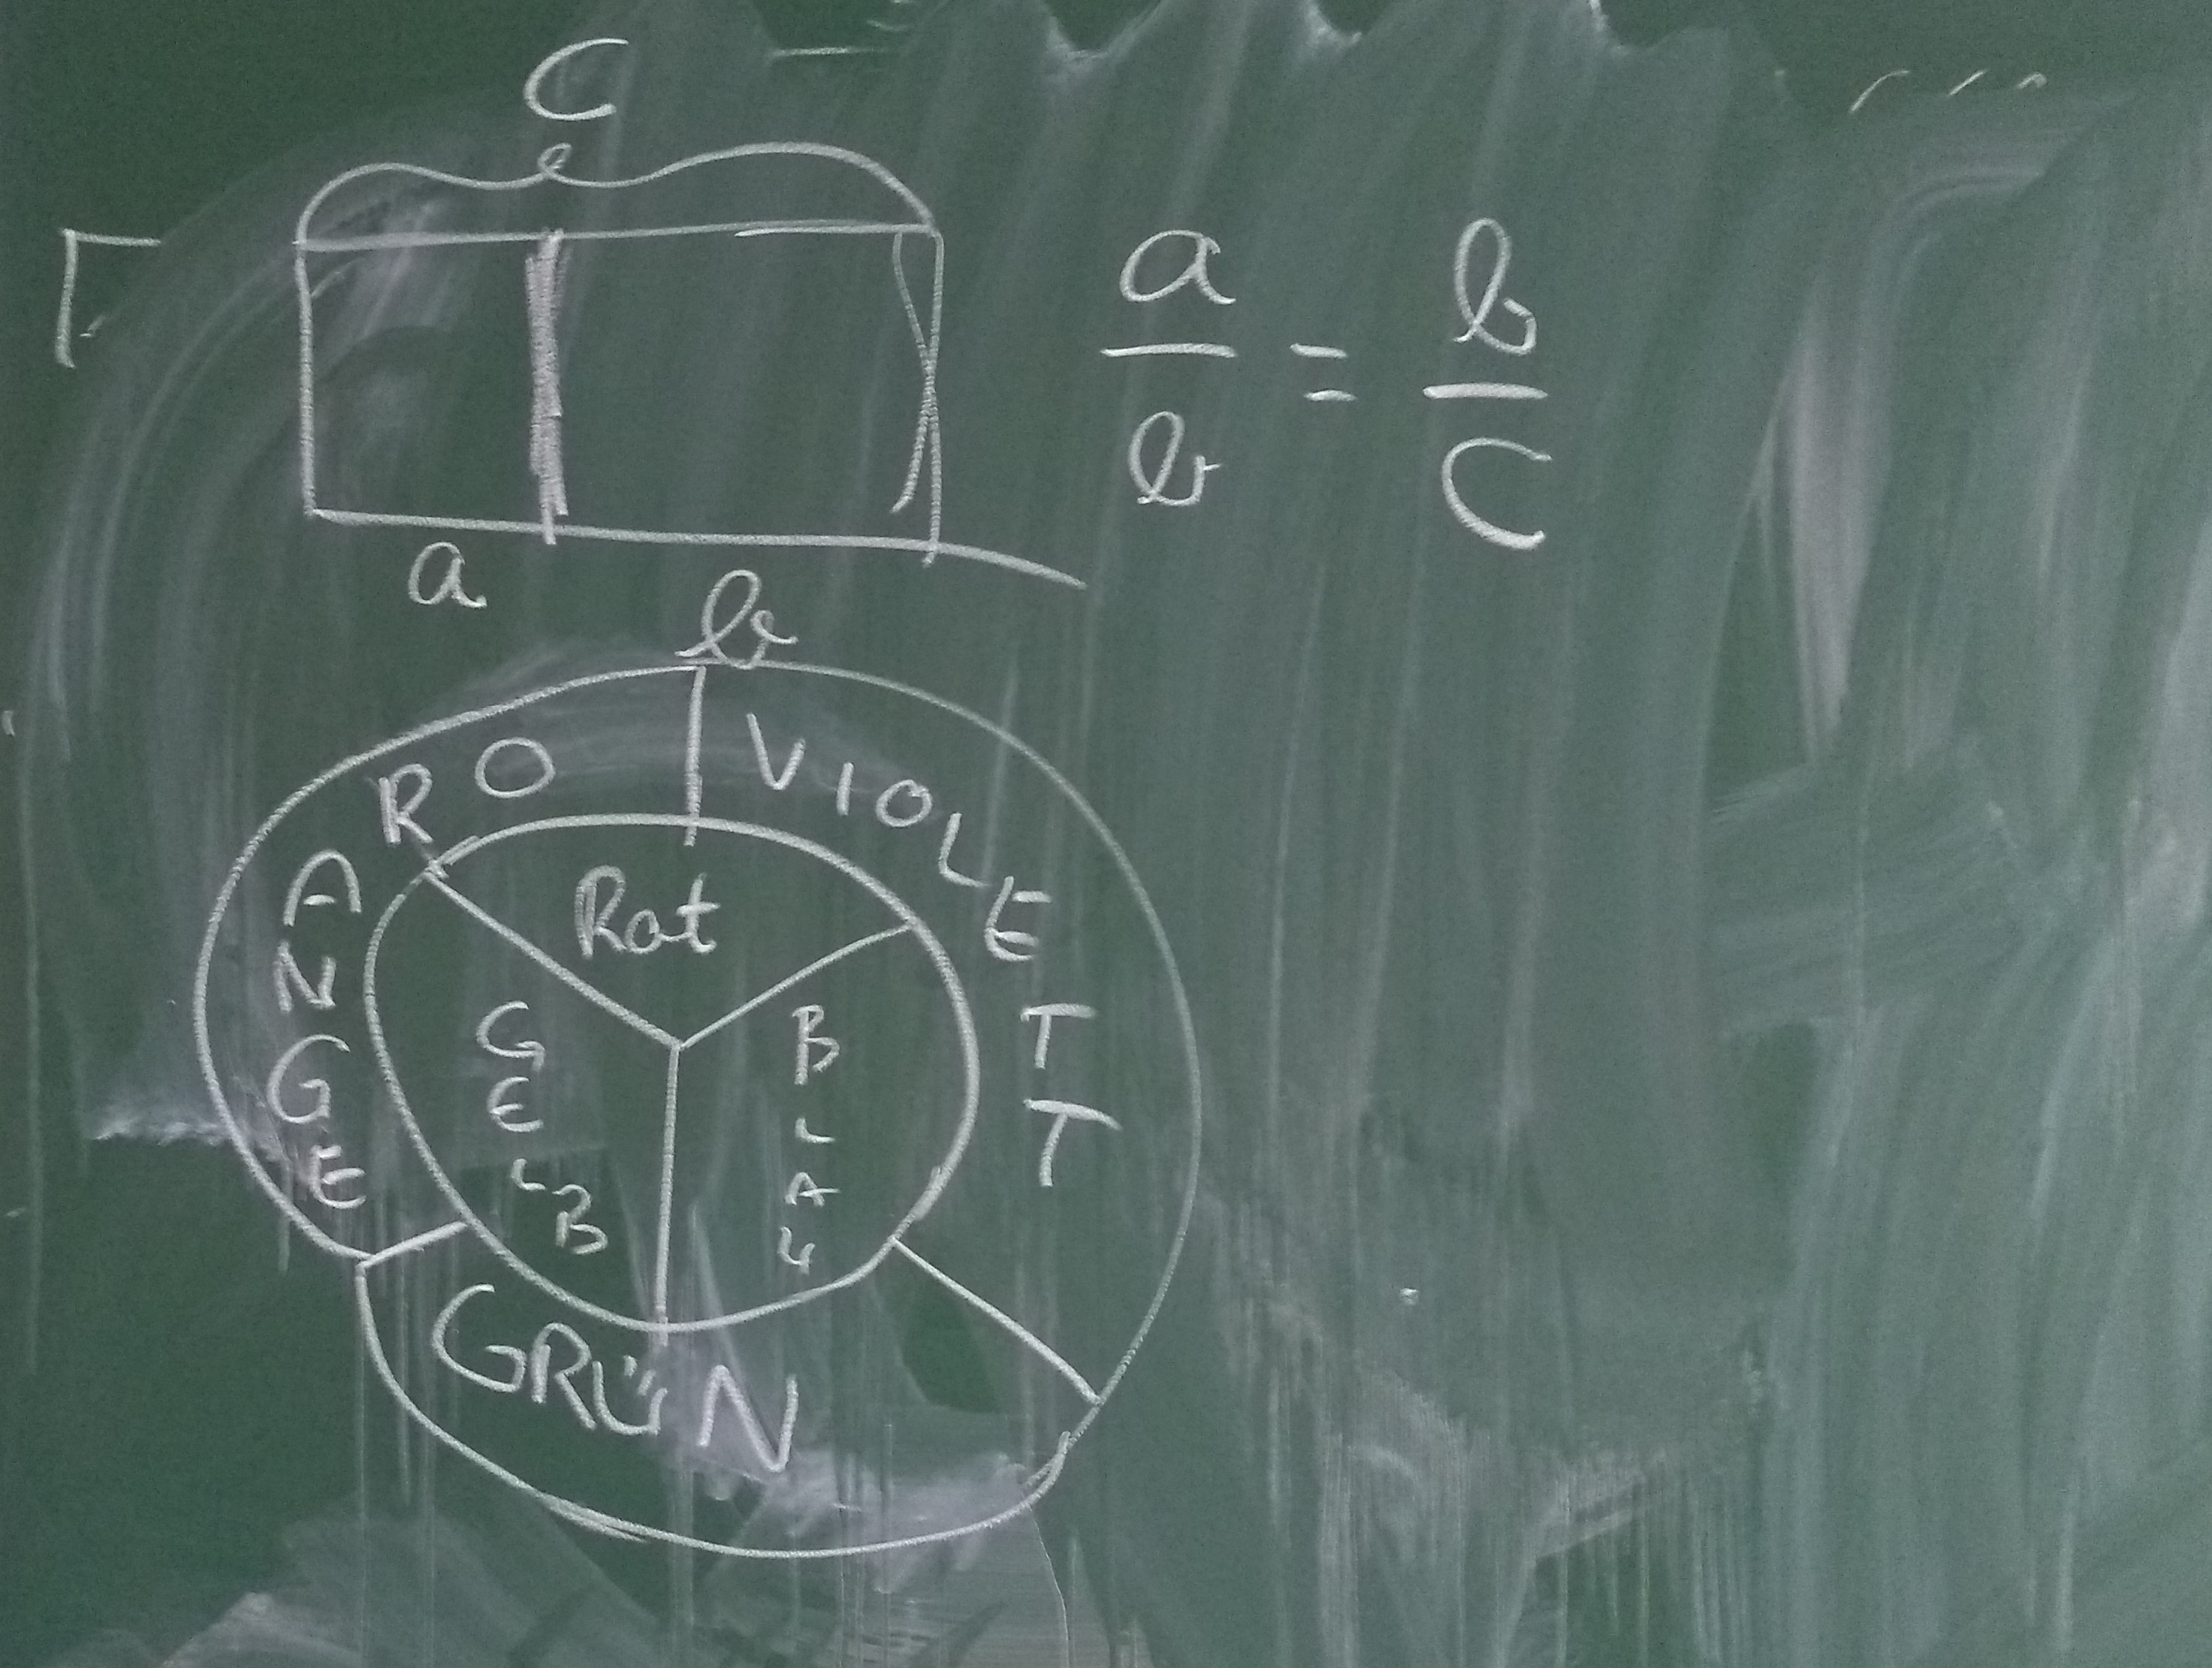 C
a
b
a/b = b/C
ORANGE
VIOLETT
Rot
GELB
BLAU
GRÜN